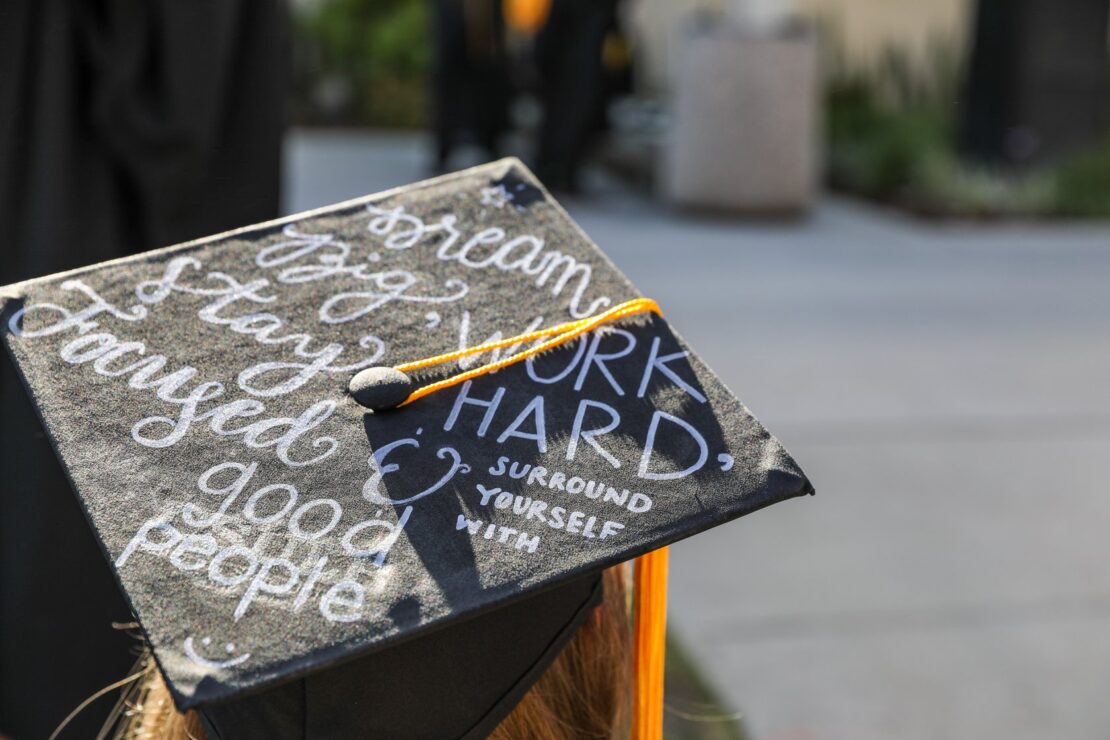 Dream
Big,
WORK
HARD,
Stay
Focused
&
SURROUND
YOURSELF
WITH
good
people